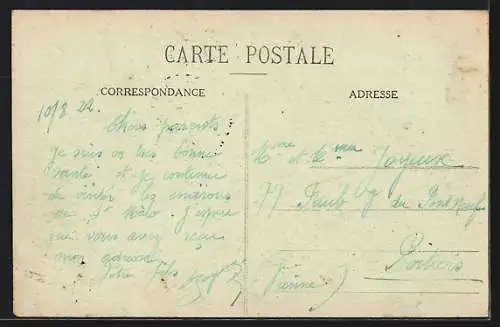 CARTE POSTALE
CORRESPONDANCE
ADRESSE
10/8 22.
Chers parents
Je suis en très bonne
santé et je continue
de visiter les environs
de St Malo. J'espère
que vous avez reçu
mon adresse
Votre fils
Mme et Joyeux
77 Faubg du Pont-Neuf
Poitiers
(Vienne)